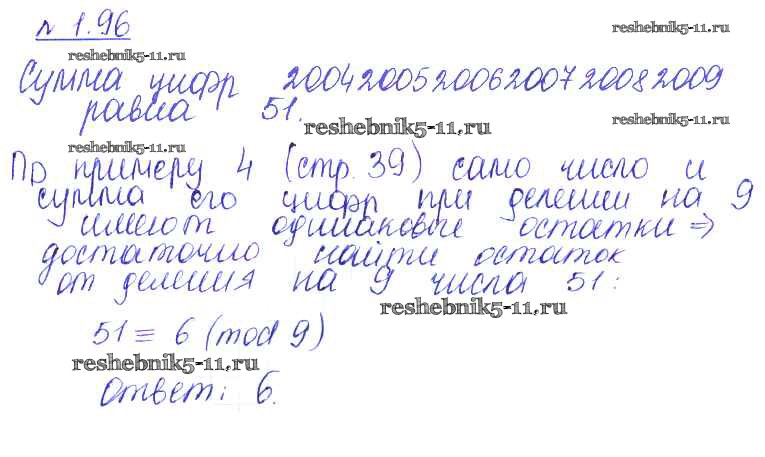 № 1.96
reshebnik5-11.ru
reshebnik5-11.ru
Сумма цифр 200420052006200720082009
равна 51.
reshebnik5-11.ru
reshebnik5-11.ru
reshebnik5-11.ru
По примеру 4 (стр. 39) само число и
сумма его цифр при делении на 9
имеют одинаковые остатки ⇒
достаточно найти остаток
от деления на 9 числа 51:
reshebnik5-11.ru
51 ≡ 6 (mod 9)
reshebnik5-11.ru
Ответ: 6.